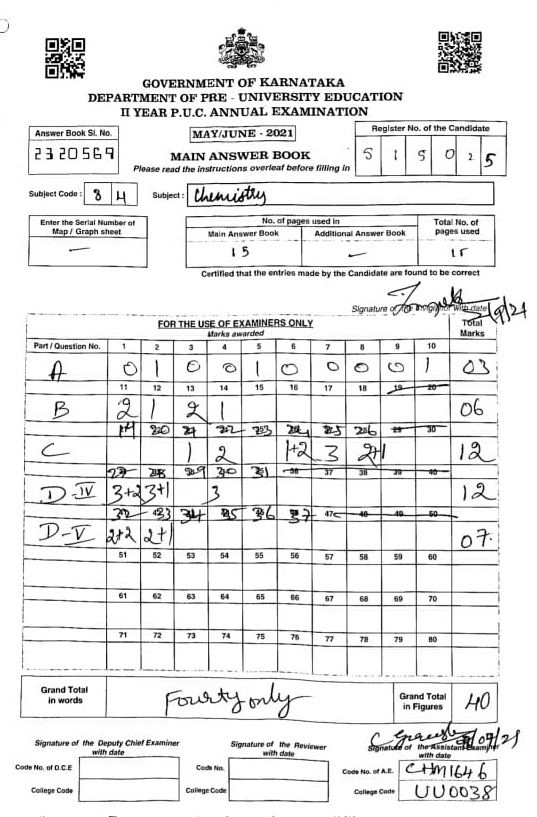 GOVERNMENT OF KARNATAKA
DEPARTMENT OF PRE - UNIVERSITY EDUCATION
II YEAR P.U.C. ANNUAL EXAMINATION
Answer Book Sl. No.
2320569
MAY/JUNE - 2021
MAIN ANSWER BOOK
Please read the instructions overleaf before filling in
Register No. of the Candidate
5 1 5 0 2 5
Subject Code : 3 4
Subject : Chemistry
Enter the Serial Number of Map / Graph sheet
—
No. of pages used in
Main Answer Book Additional Answer Book
15 —
Total No. of pages used
15
Certified that the entries made by the Candidate are found to be correct
Signature of the Invigilator with date
FOR THE USE OF EXAMINERS ONLY
Marks awarded
Total Marks
Part / Question No. 1 2 3 4 5 6 7 8 9 10
A 0 1 0 0 1 0 0 0 0 1 03
11 12 13 14 15 16 17 18 19 20
B 2 1 2 1 06
20 22 25 26 29 30
C 1 2 1+2 3 2+1 12
30 31 36 37 38 39 40
D-IV 3+2 3+1 3 12
32 33 34 35 36 37 47 48 49 50
D-V 2+2 2+1 07
51 52 53 54 55 56 57 58 59 60
61 62 63 64 65 66 67 68 69 70
71 72 73 74 75 76 77 78 79 80
Grand Total in words
Fourty only
Grand Total in Figures
40
Signature of the Deputy Chief Examiner with date
Signature of the Reviewer with date
Signature of the Assistant Examiner with date
Code No. of D.C.E
Code No.
Code No. of A.E. CHM1646
College Code
College Code
College Code UU0038